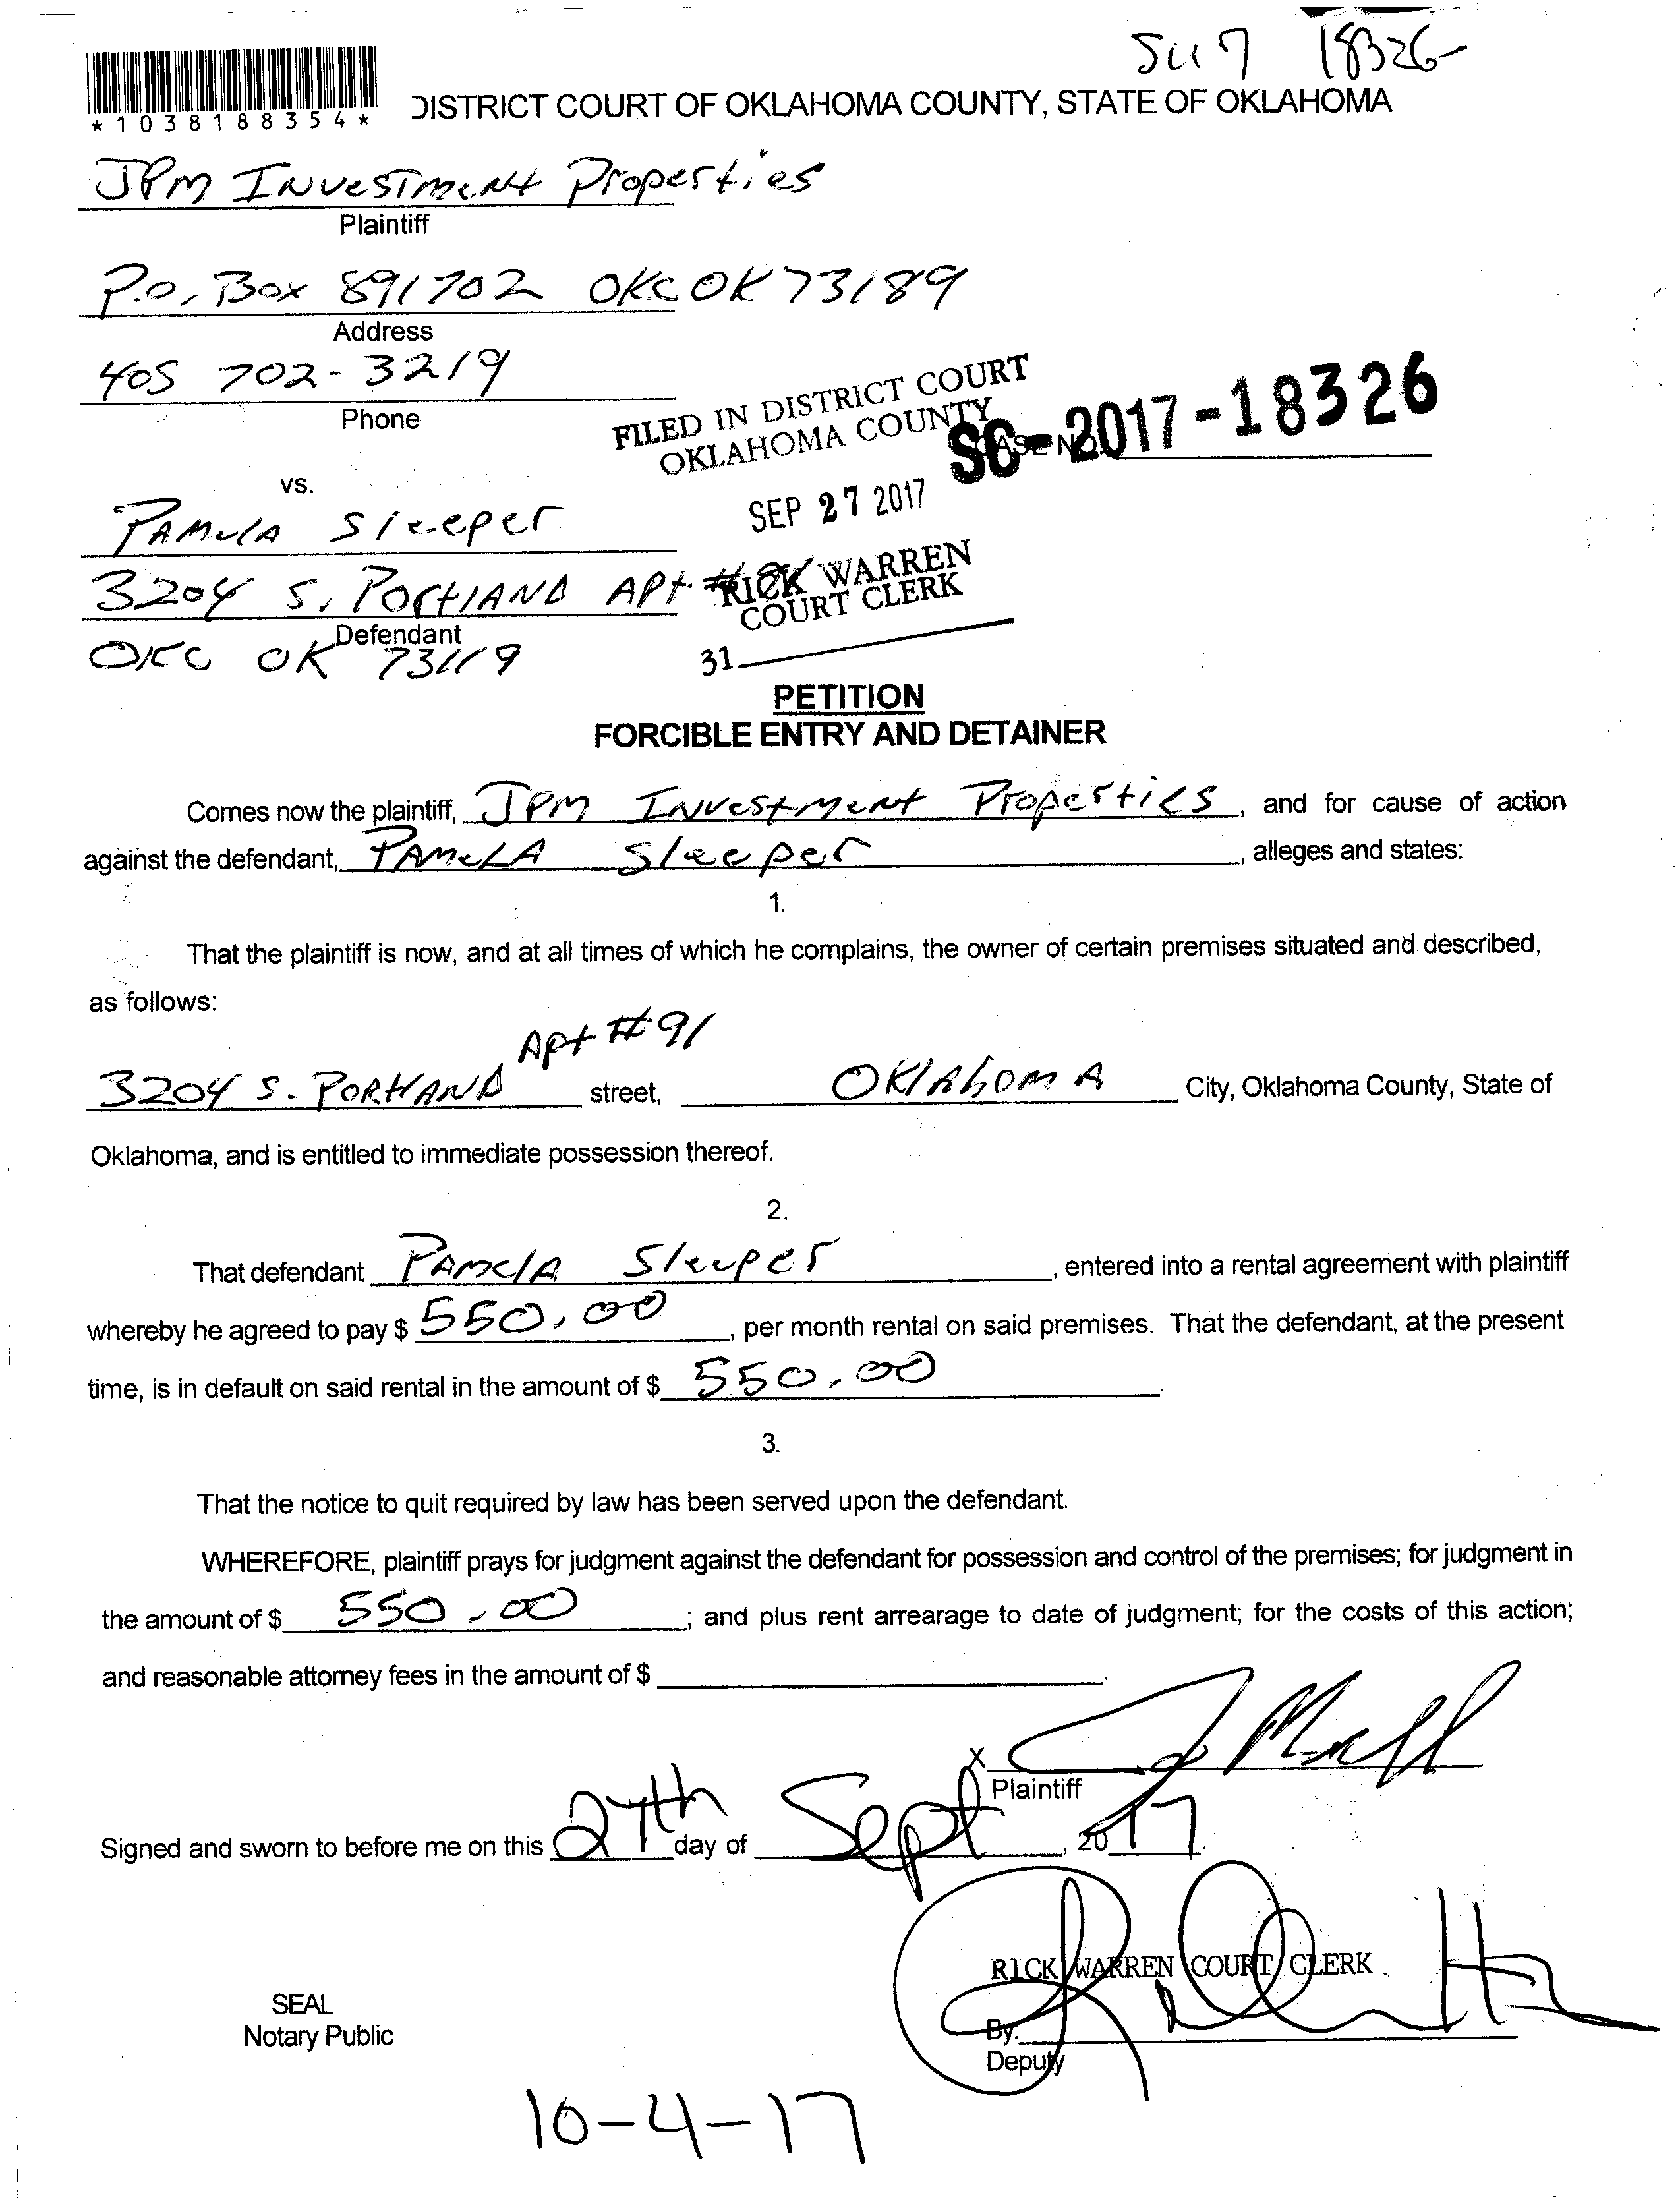 SC17 18326
*1038188354*
DISTRICT COURT OF OKLAHOMA COUNTY, STATE OF OKLAHOMA
JPM Investment Properties
Plaintiff
P.O. Box 891702 OKC OK 73189
Address
405 702-3219
Phone
FILED IN DISTRICT COURT
OKLAHOMA COUNTY
CASE NO.
SC-2017-18326
vs.
SEP 27 2017
Pamela Sleeper
3204 S. Portland Apt #
RICK WARREN
COURT CLERK
Defendant
OKC OK 73119
31
PETITION
FORCIBLE ENTRY AND DETAINER
Comes now the plaintiff, JPM Investment Properties, and for cause of action
against the defendant, Pamela Sleeper, alleges and states:
1.
That the plaintiff is now, and at all times of which he complains, the owner of certain premises situated and described,
as follows:
Apt #91
3204 S. Portland street, Oklahoma City, Oklahoma County, State of
Oklahoma, and is entitled to immediate possession thereof.
2.
That defendant Pamela Sleeper, entered into a rental agreement with plaintiff
whereby he agreed to pay $ 550.00, per month rental on said premises. That the defendant, at the present
time, is in default on said rental in the amount of $ 550.00.
3.
That the notice to quit required by law has been served upon the defendant.
WHEREFORE, plaintiff prays for judgment against the defendant for possession and control of the premises; for judgment in
the amount of $ 550.00; and plus rent arrearage to date of judgment; for the costs of this action;
and reasonable attorney fees in the amount of $ .
X
Plaintiff
Signed and sworn to before me on this 27th day of Sept, 2017.
RICK WARREN COURT CLERK
SEAL
Notary Public
By.
Deputy
10-4-17